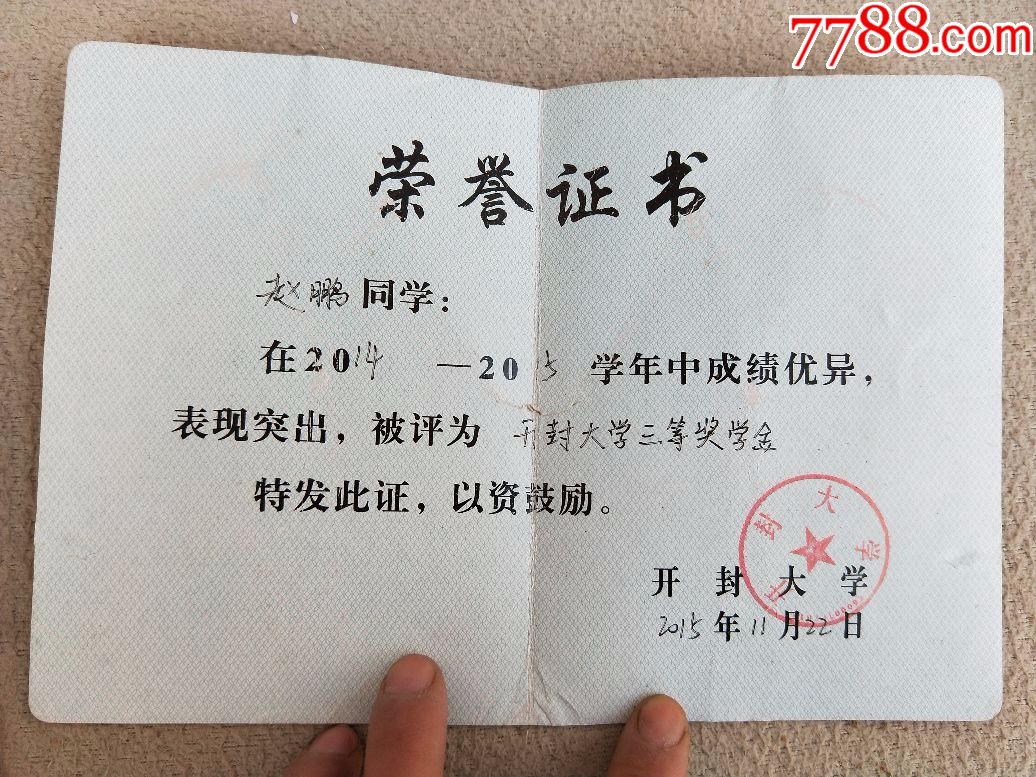 7788.com
荣誉证书
赵鹏同学：
在2014—2015学年中成绩优异，
表现突出，被评为 开封大学三等奖学金
特发此证，以资鼓励。
开封大学
开封大学
2015年11月22日